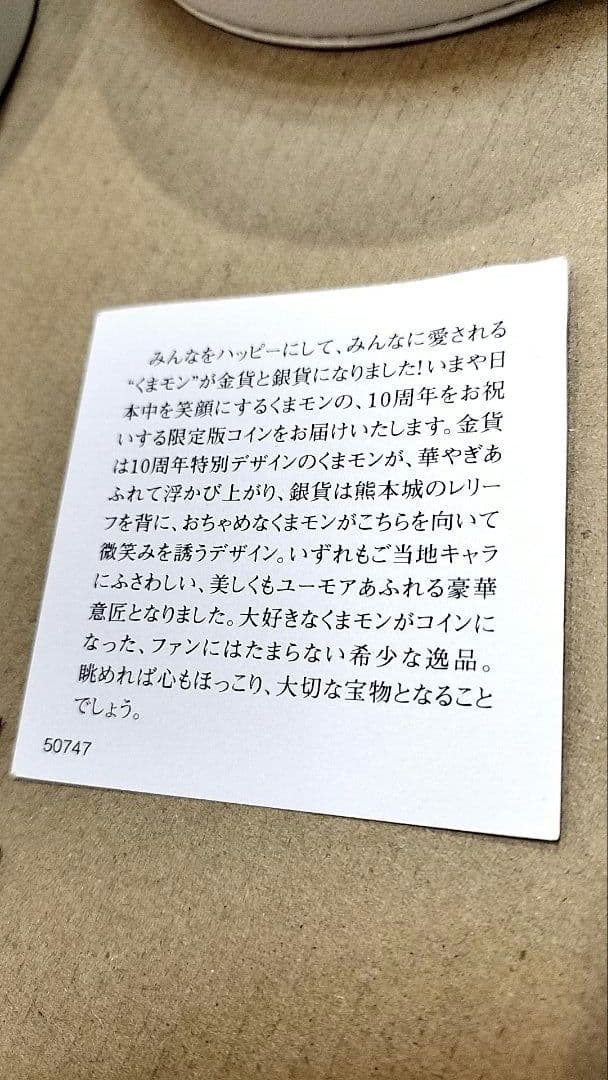 みんなをハッピーにして、みんなに愛される
“くまモン”が金貨と銀貨になりました！いまや日
本中を笑顔にするくまモンの、10周年をお祝
いする限定版コインをお届けいたします。金貨
は10周年特別デザインのくまモンが、華やぎあ
ふれて浮かび上がり、銀貨は熊本城のレリー
フを背に、おちゃめなくまモンがこちらを向いて
微笑みを誘うデザイン。いずれもご当地キャラ
にふさわしい、美しくもユーモアあふれる豪華
意匠となりました。大好きなくまモンがコインに
なった、ファンにはたまらない希少な逸品。
眺めれば心もほっこり、大切な宝物となること
でしょう。
50747